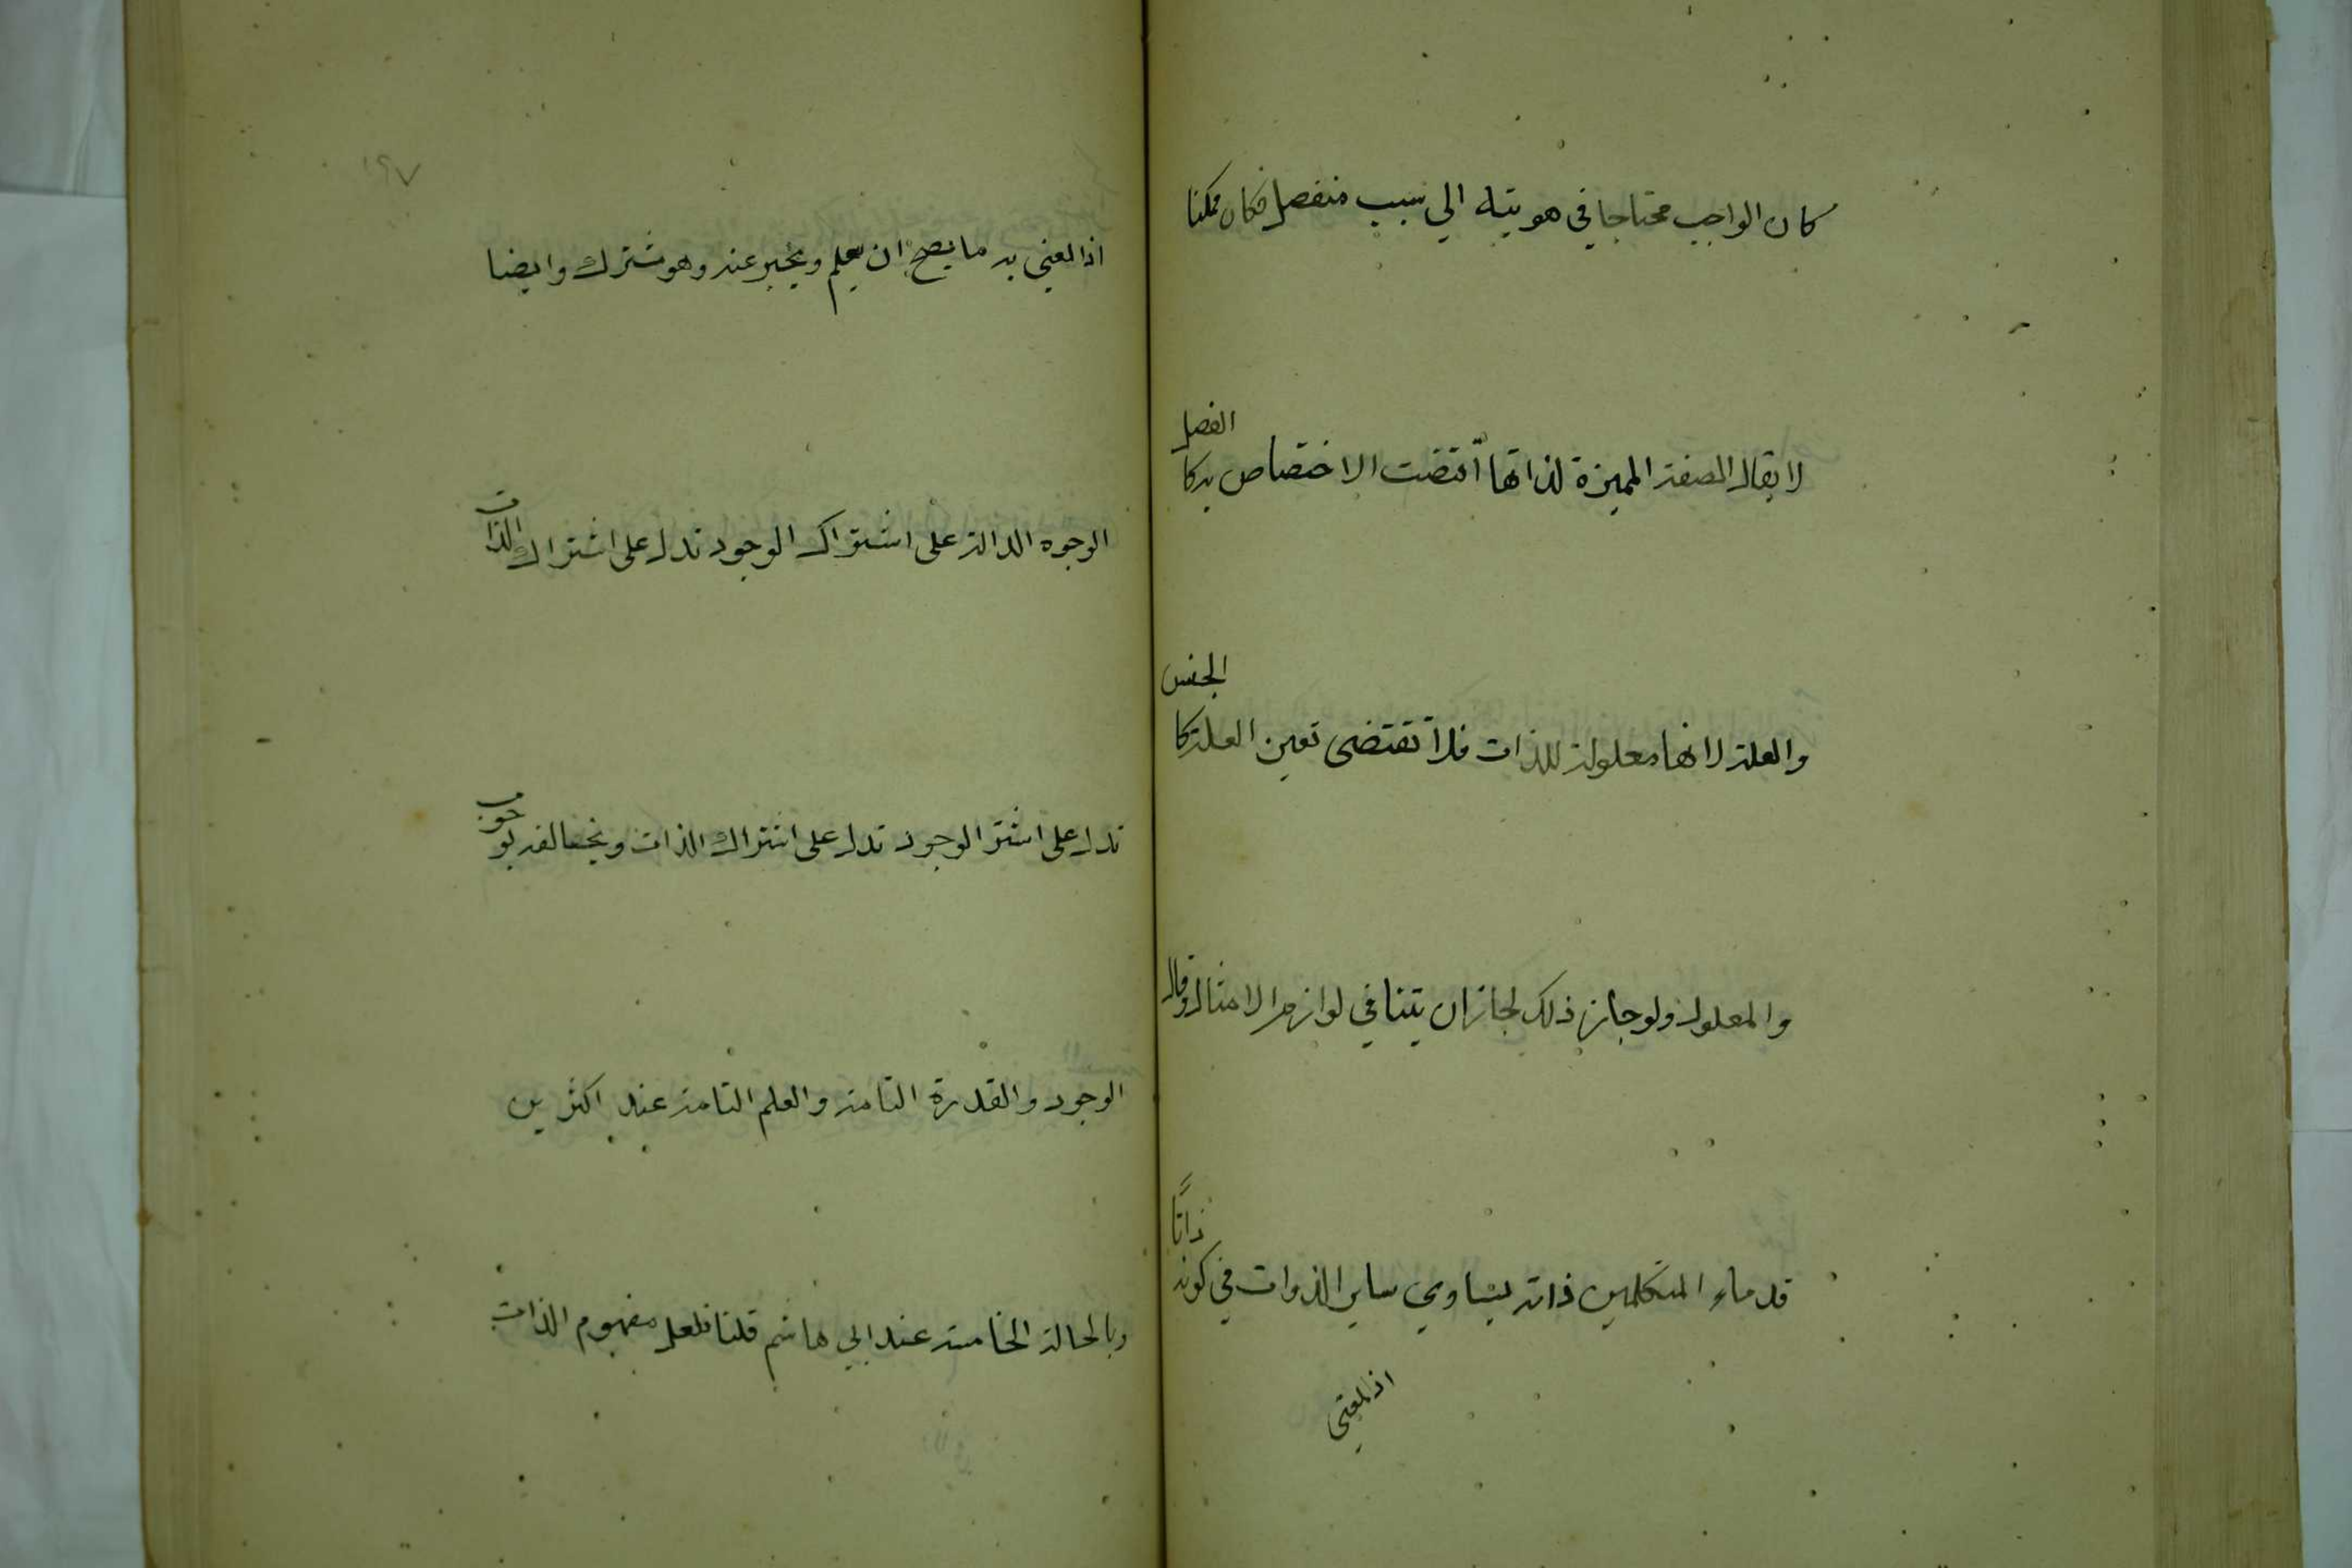 كان الواجب محتاجا في هويته الي سبب منفصل فكان ممكنا
لا يقال الصفة المميزة لذاتها اقتضت الاختصاص بركا الفصل
والعلة لانها معلولة للذات فلا تقتضى تعين العلة كا الجنس
والمعلول ولو جاز ذلك لجاز ان يتنافي لوازم الامثال وقال
قدماء المتكلمين ذاته يساوي ساير الذوات في كونه ذاتًا
اذ المعنى
١٩٧
اذ المعني به ما يصح ان يعلم ويخبر عنه وهو مشترك وايضا
الوجوه الدالة على اشتراك الوجود تدل على اشتراك الذات
تدل على اشترا الوجود تدل على اشتراك الذات ويخالفه بوجوب
الوجود والقدرة التامة والعلم التامة عند اكثرين
وبالحالة الخامسة عند ابي هاشم قلنا فلعل مفهوم الذات